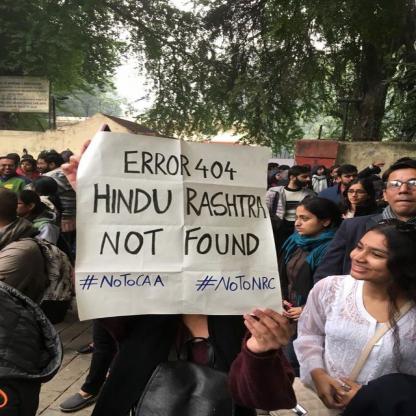 ERROR 404
HINDU RASHTRA
NOT FOUND
#NOTOCAA #NOTONRC